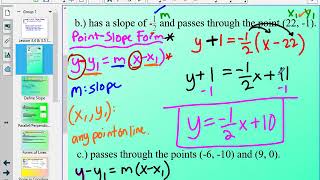 b.) has a slope of -½ and passes through the point (22, -1).
m
x₁ y₁
Point-Slope Form*
y-y₁ = m(x-x₁)*
m: slope
(x₁, y₁):
any point on line.
y+1 = -½(x-22)
y+1 = -½x+11
-1 -1
y = -½x+10
c.) passes through the points (-6, -10) and (9, 0).
y-y₁ = m(x-x₁)
Define Slope